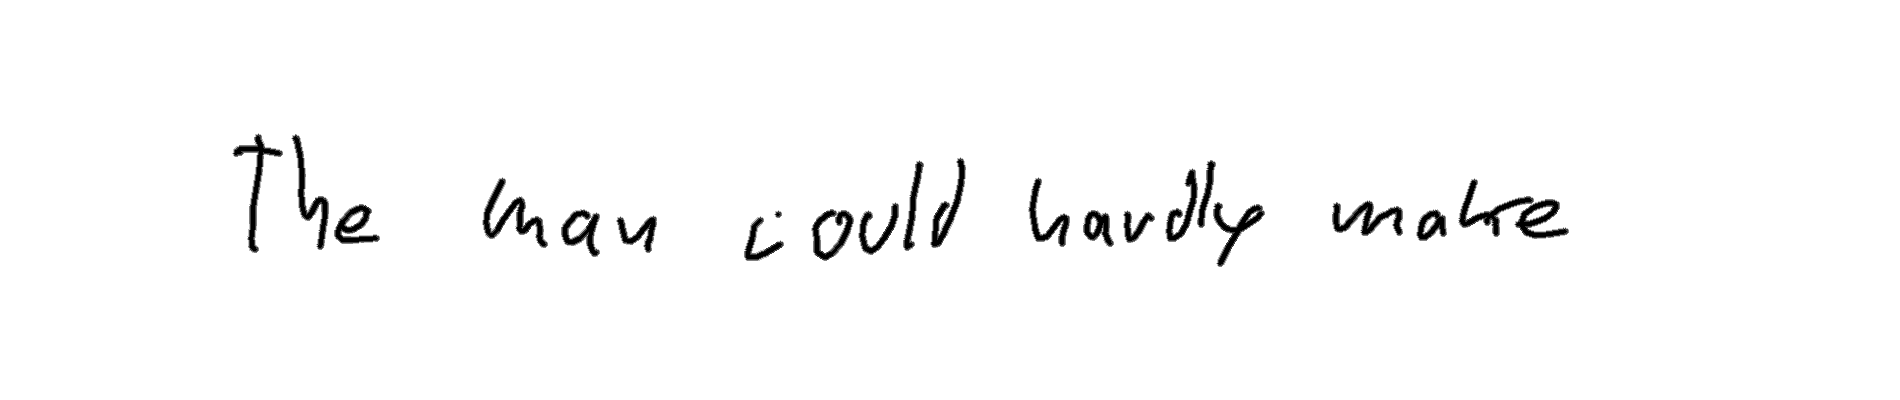 The man could hardly make